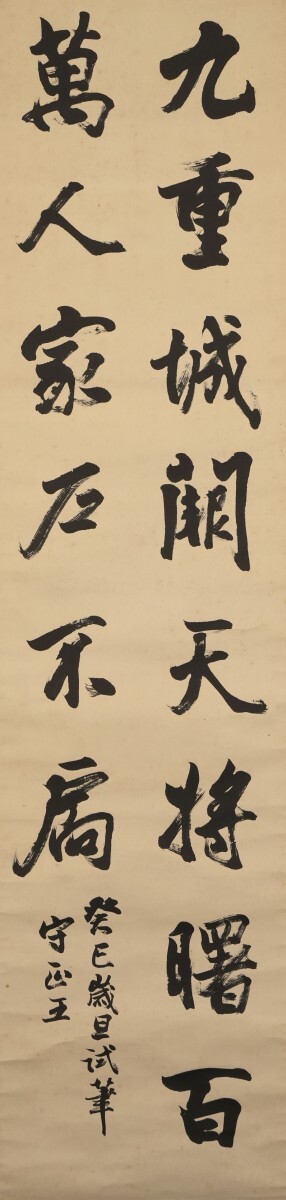 九重城闕天將曙百
萬人家戶不扃
癸巳歲旦試筆
守正王